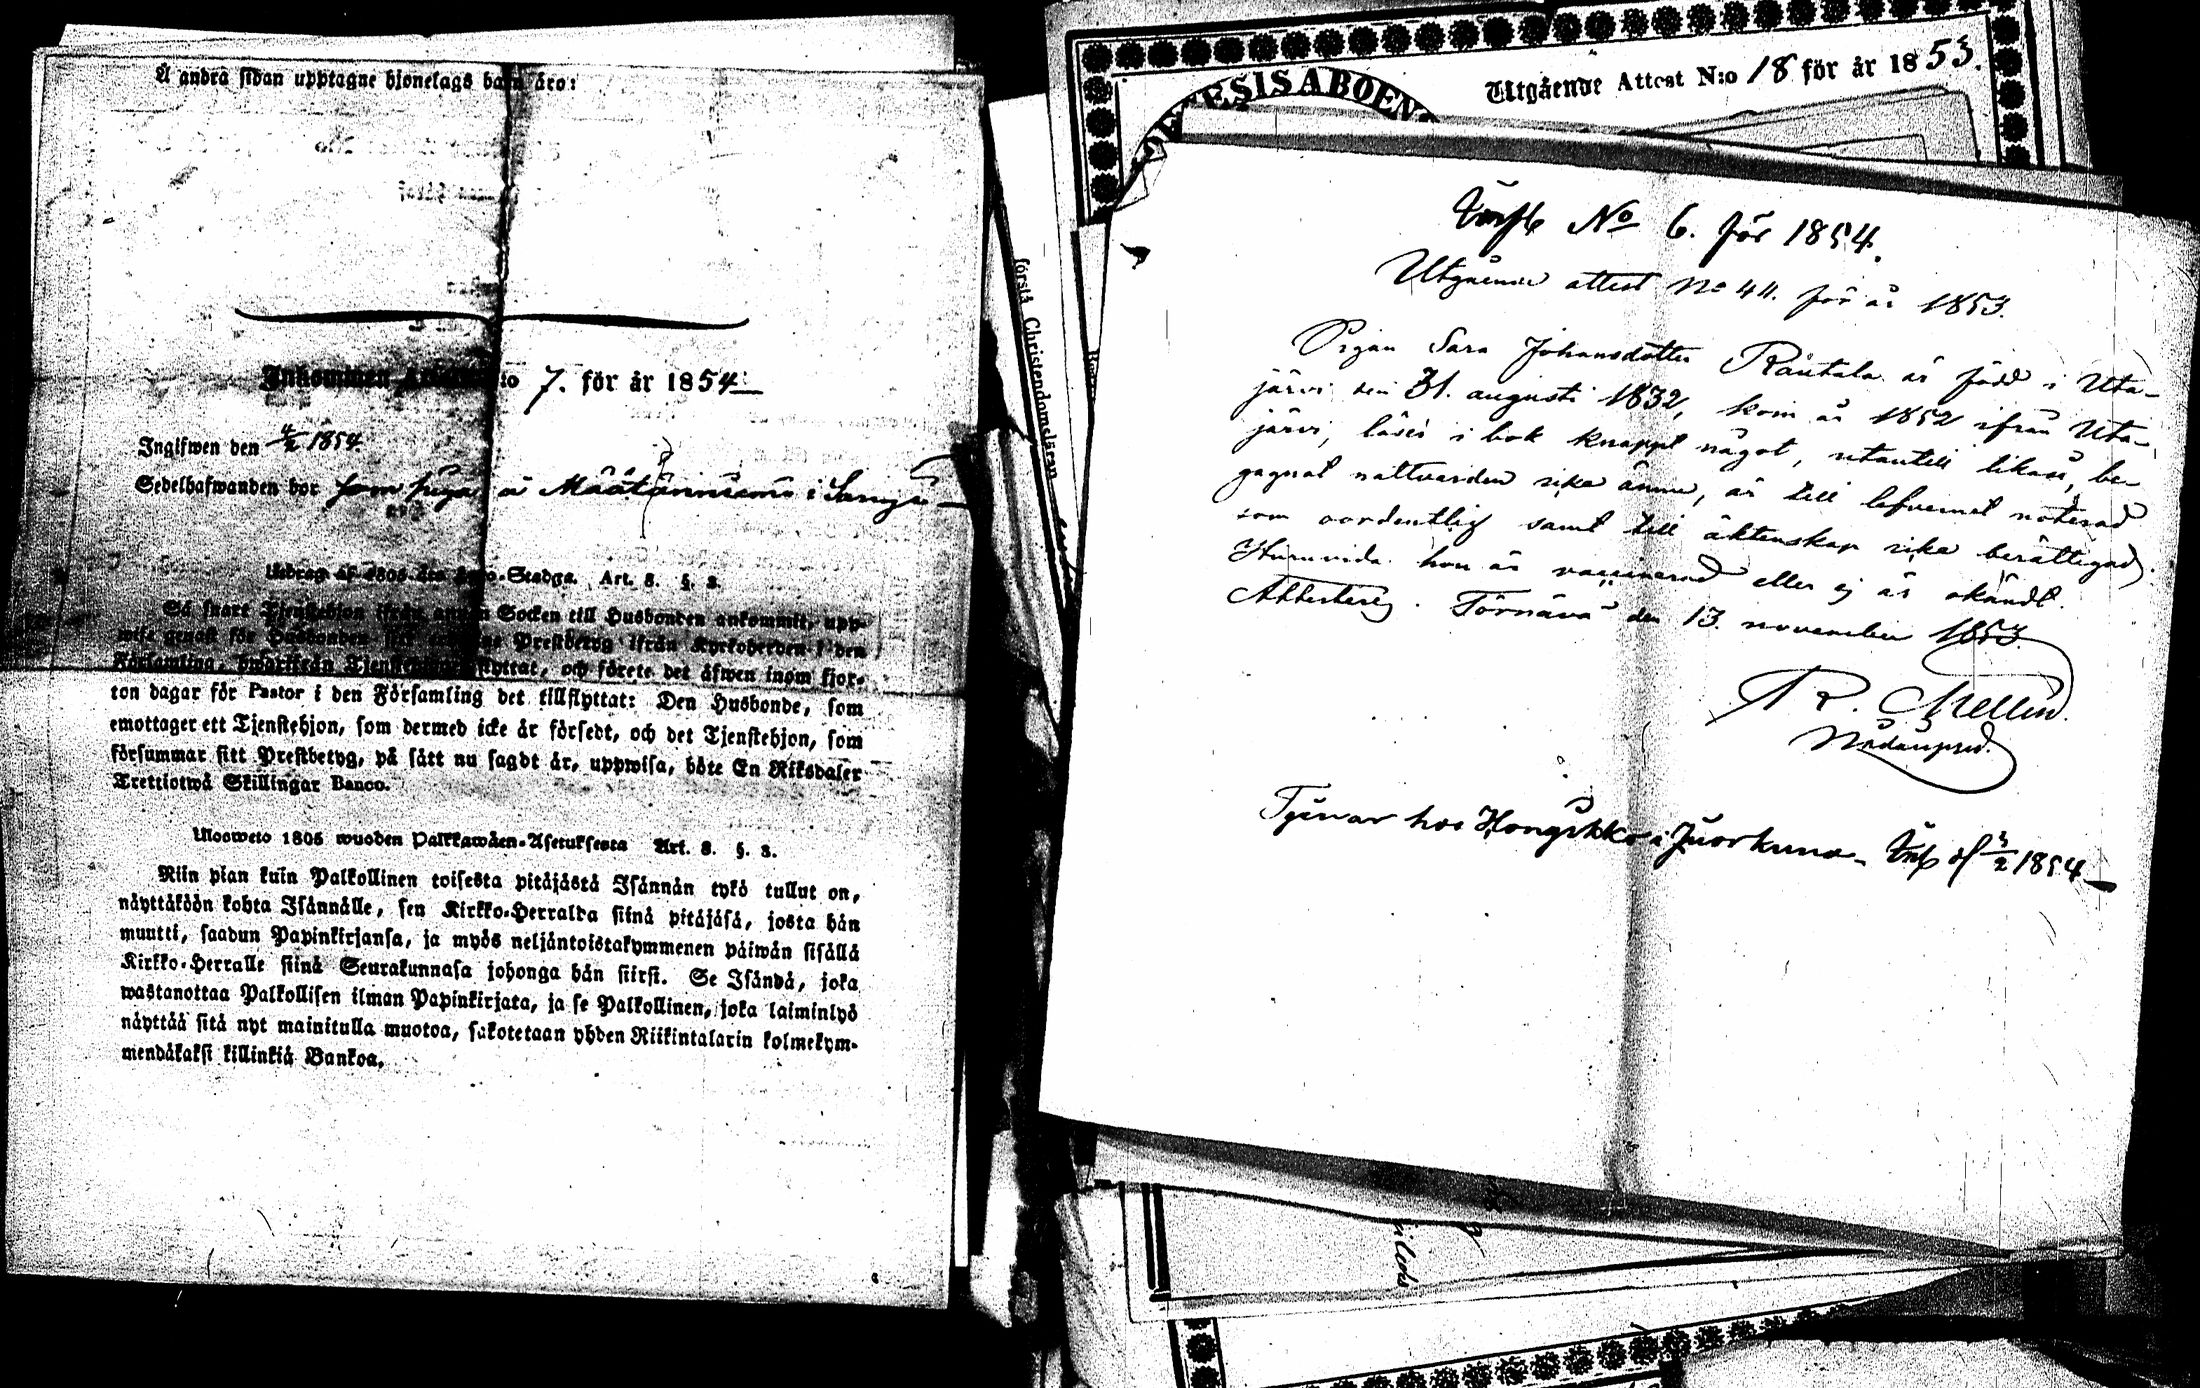 Å andra sidan upptagne hjonelags barn äro:
Inkommen Attest N:o 7. för år 1854.
Ingifwen den 4/2 1854.
Sedelhafwanden bor som piga å Määtänniemi i
Utdrag af 1805 års Lego-Stadga. Art. 8. §. 3.
Så snart Tjenstehjon ifrån annan Socken till Husbonden ankommit, upp-
wise genast för Husbonden sitt Prestbetyg ifrån Kyrkoherden i den
Församling, hwarifrån Tjenstehjonet flyttat, och förete det äfwen inom fjor-
ton dagar för Pastor i den Församling det tillflyttat: Den Husbonde, som
emottager ett Tjenstehjon, som dermed icke är försedt, och det Tjenstehjon, som
försummar sitt Prestbetyg, på sätt nu sagdt är, uppwisa, böte En Riksdaler
Trettiotwå Skillingar Banco.
Ulosweto 1805 wuoden Palkkawäen-Asetuksesta Art. 8. §. 3.
Niin pian kuin Palkollinen toisesta pitäjästä Isännän tykö tullut on,
näyttäköön kohta Isännälle, sen Kirkko-Herralda siinä pitäjäsä, josta hän
muutti, saadun Papinkirjansa, ja myös neljäntoistakymmenen päiwän sisällä
Kirkko-Herralle siinä Seurakunnasa johonga hän siirsi. Se Isändä, joka
wastanottaa Palkollisen ilman Papinkirjata, ja se Palkollinen, joka laiminlyö
näyttää sitä nyt mainitulla muotoa, sakotetaan yhden Riikintalarin kolmekym-
mendäkaksi killinkiä Bankoa.
första Christendomsläran
ESIS ABOEN
Utgående Attest N:o 18 för år 1853.
No 6. för 1854.
Utgående attest No 44. för år 1853.
Pigan Sara Johansdotter Räutala är född i Uta-
järvi den 31. augusti 1832, kom år 1852 ifrån Uta-
järvi, läser i bok knappt något, utantill likaså, be-
gagnat nattvarden icke ännu, är till lefvernet noterad
som oordentlig samt till äktenskap icke berättigad.
Huruvida hon är vaccinerad eller ej är okändt.
Attesteras. Törnävä den 13. november 1853.
R. Mellin.
Nådårspred.
Tjenar hos Hongikko i Juorkuna 3/2 1854